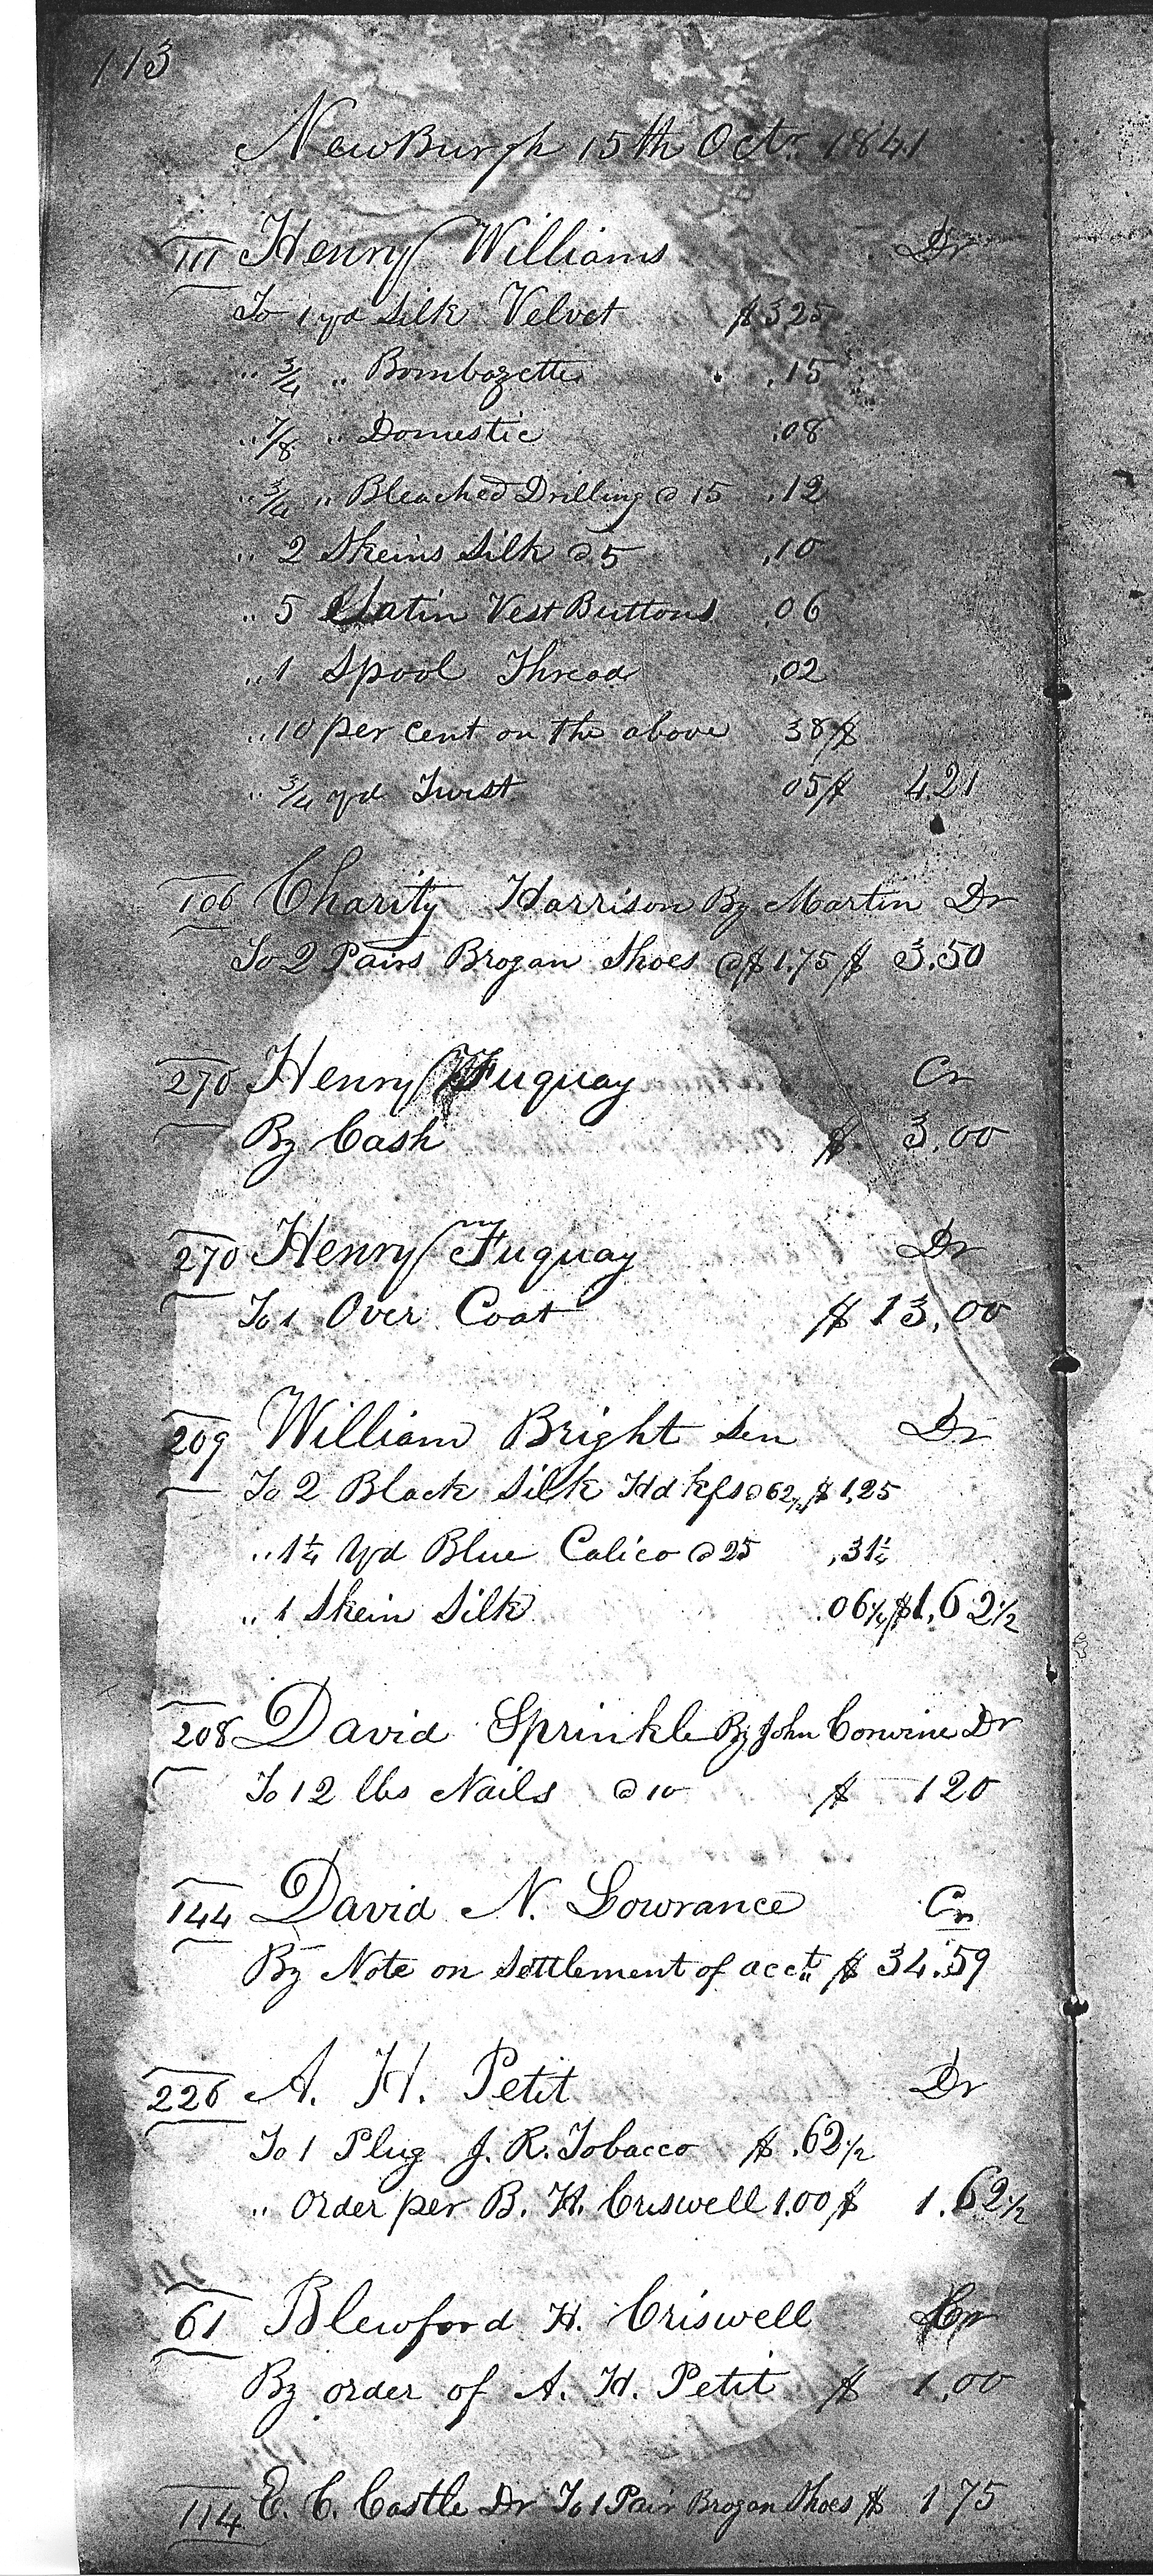 113
NewBurgh 15th Octr 1841
111 Henry Williams Dr
To 1 yd Silk Velvet $3.25
" 3/4 " Bombazette .15
" 7/8 " Domestic .08
" 3/4 " Bleached Drilling @ 15 .12
" 2 Skeins Silk @ 5 .10
" 5 Satin Vest Buttons .06
" 1 Spool Thread .02
" 10 per cent on the above 38 $
" 3/4 yd Twist 05 $ 4.21
106 Charity Harrison By Martin Dr
To 2 Pairs Brogan Shoes @ $1.75 $ 3.50
270 Henry Fuquay Cr
By Cash $ 3.00
270 Henry Fuquay Dr
To 1 Over Coat $ 13,00
209 William Bright Sen Dr
To 2 Black Silk Hdkfs @ 62 1/2 $ 1,25
" 1 1/4 Yd Blue Calico @ 25 ,31 1/4
" 1 Skein Silk .06 1/4 $1,62 1/2
208 David Sprinkle By John Corwine Dr
To 12 lbs Nails @ 10 $ 1 20
144 David N. Lowrance Cr
By Note on Settlement of acct $ 34.59
226 A. H. Petit Dr
To 1 Plug J. R. Tobacco $ .62 1/2
" Order per B. H. Criswell 1.00 $ 1.62 1/2
61 Blewford H. Criswell Cr
By order of A. H. Petit $ 1,00
114 E. C. Castle Dr To 1 Pair Brogan Shoes $ 1 75